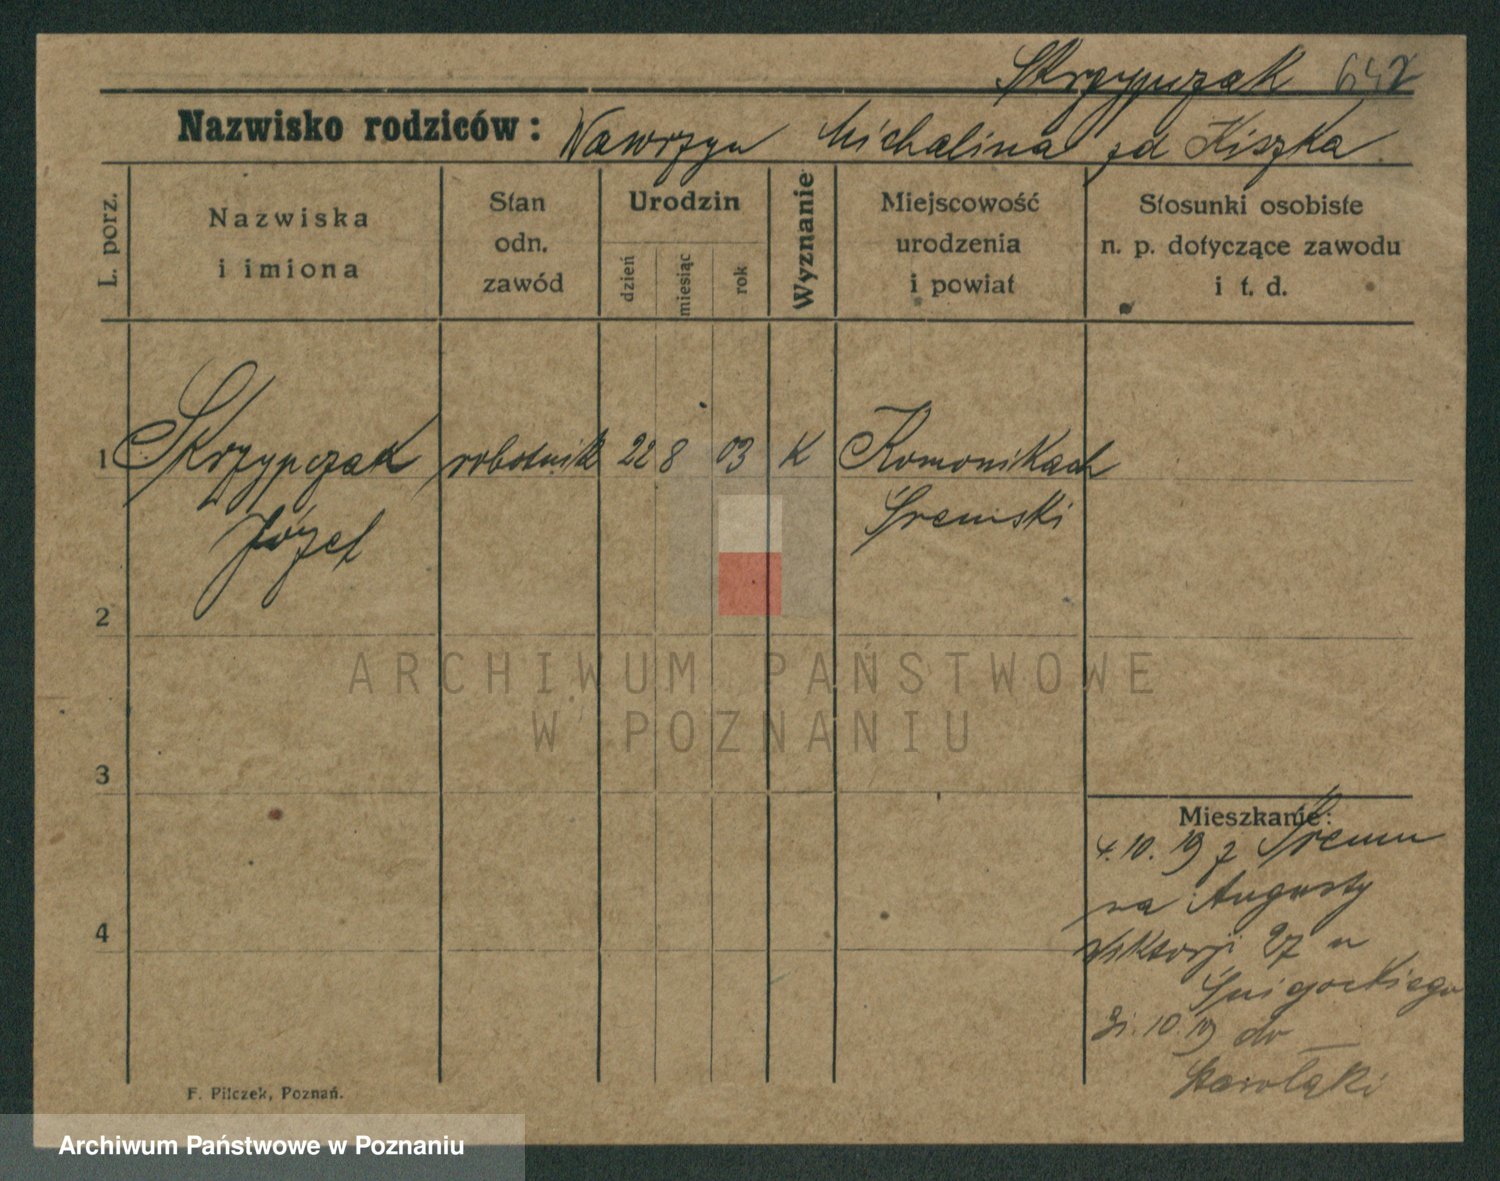 Skrzypczak 642
Nazwisko rodziców: Wawrzyn Michalina zd Kiszka
L. porz.
Nazwiska
i imiona
Stan
odn.
zawód
Urodzin
dzień
miesiąc
rok
Wyznanie
Miejscowość
urodzenia
i powiat
Stosunki osobiste
n. p. dotyczące zawodu
i t. d.
1 Skrzypczak robotnik 22 8 03 K Komonikach
Józef Śremski
2
ARCHIWUM PAŃSTWOWE
W POZNANIU
3
Mieszkanie:
4.10.19 z Śremu
na Augusty
4
Wiktorji 27 u
31.10.19 do
Starołęki
F. Pilczek, Poznań.
Archiwum Państwowe w Poznaniu